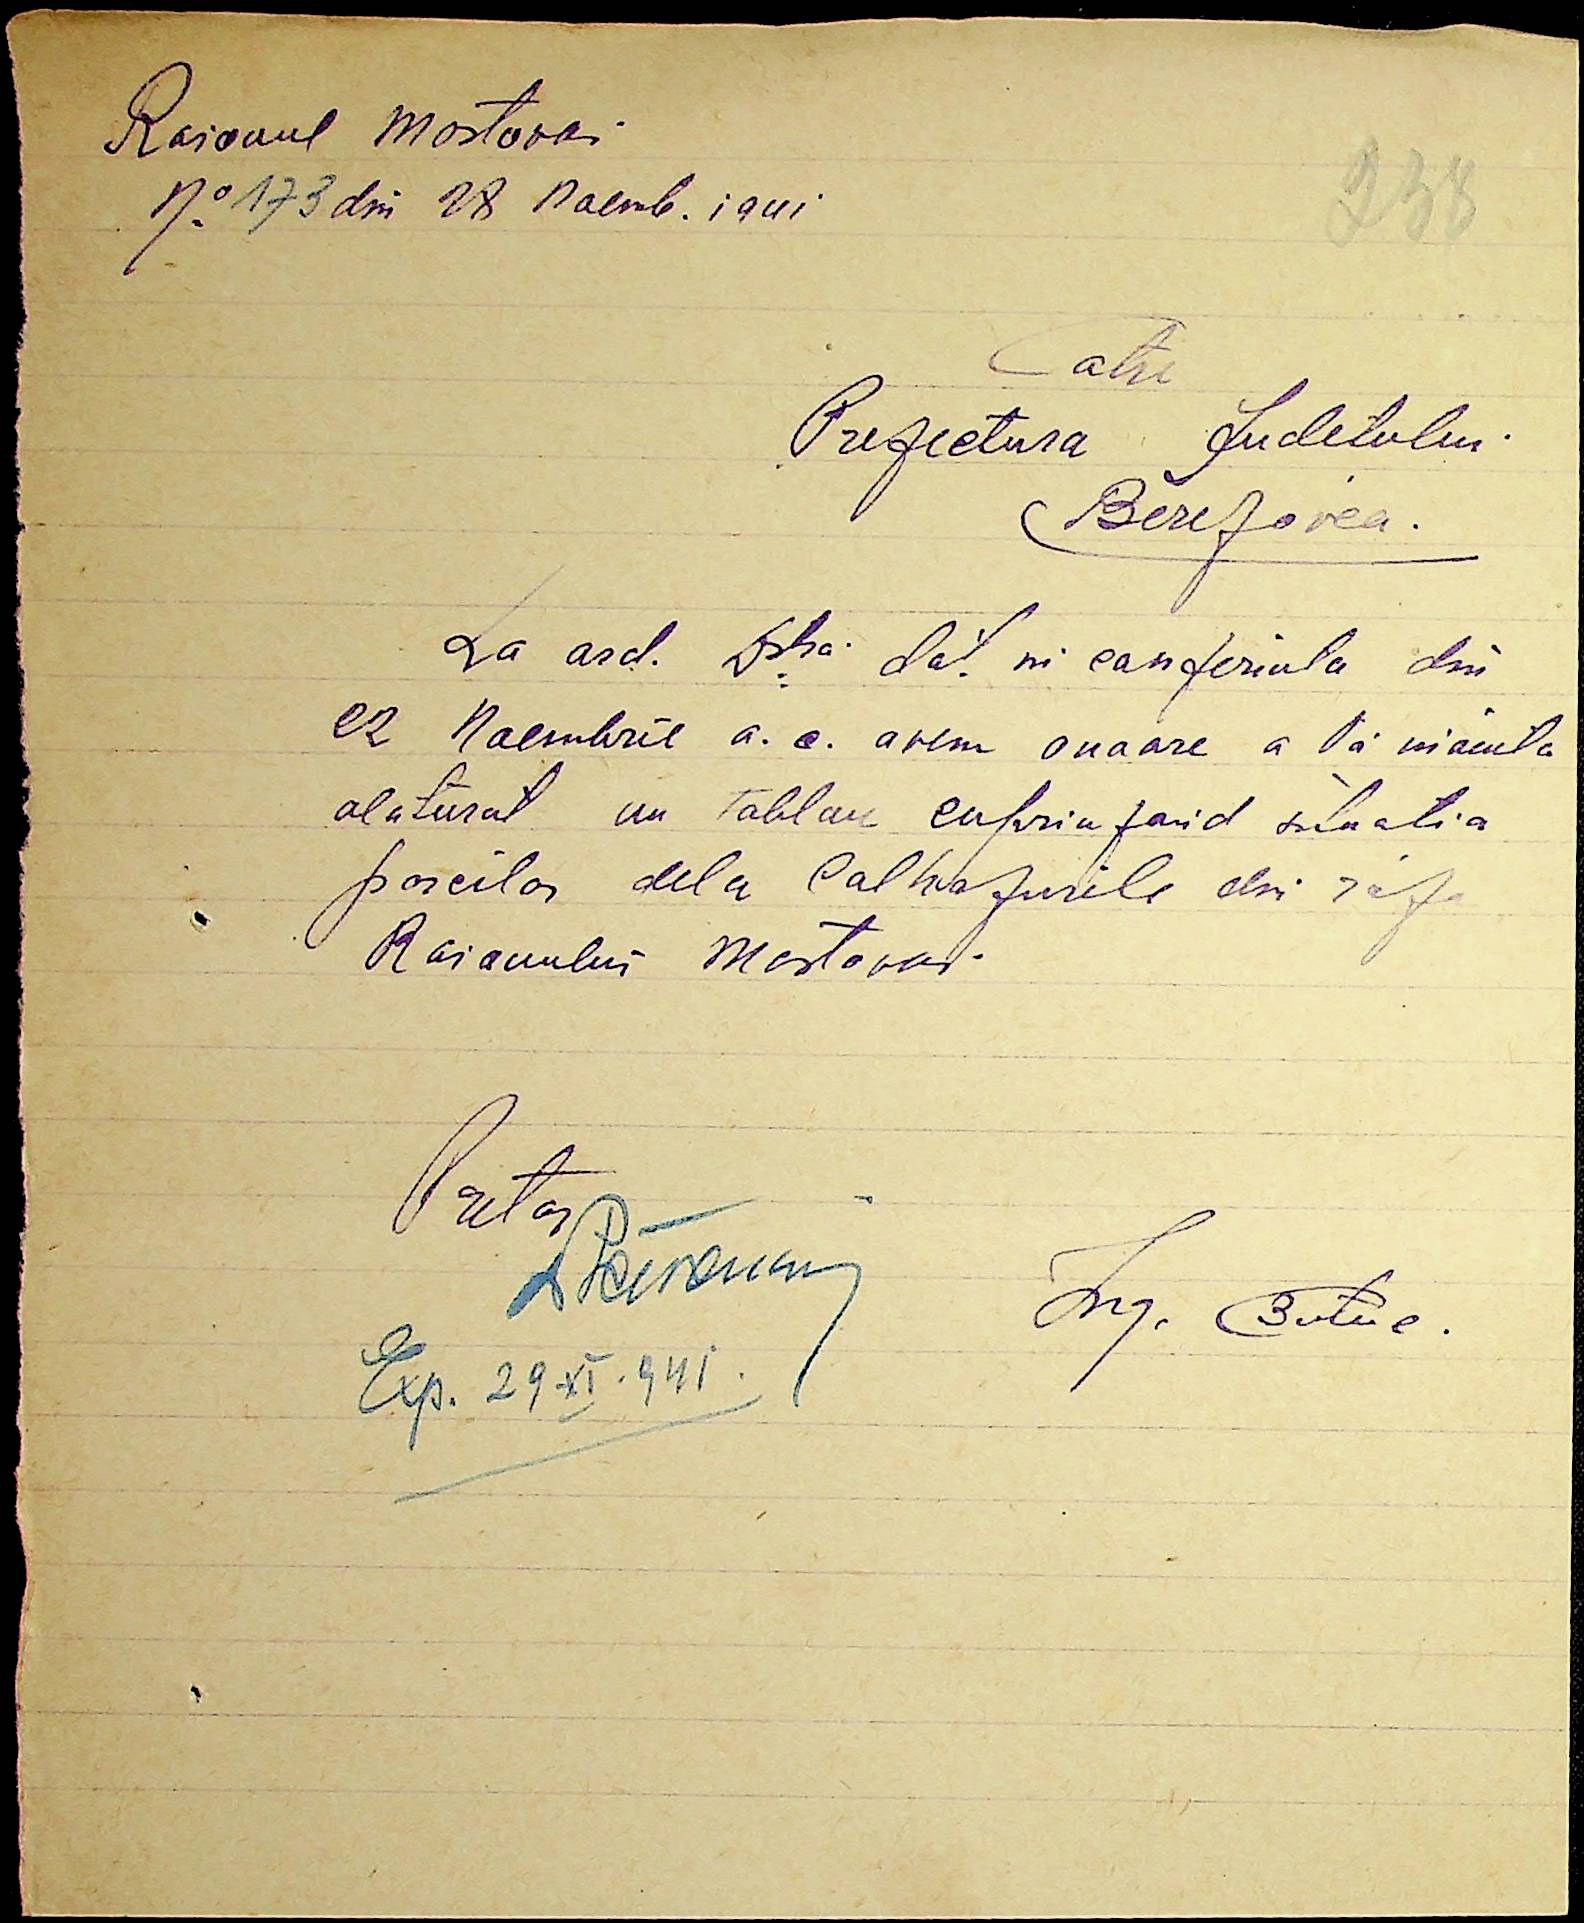 Raionul Mostovoi
238
No. 173 din 28 Noemb. 1941
Catre
Prefectura Judetului
Berezovca.
La ord. Dstra. dat in conferinta din
22 Noembrie a. c. avem onoare a Vă inainta
alaturat un Tablou cuprinzand situatia
porcilor dela Colhozurile din raza
Raionului Mostovoi.
Pretor
Ing. Butuc.
Exp. 29 XI. 941.